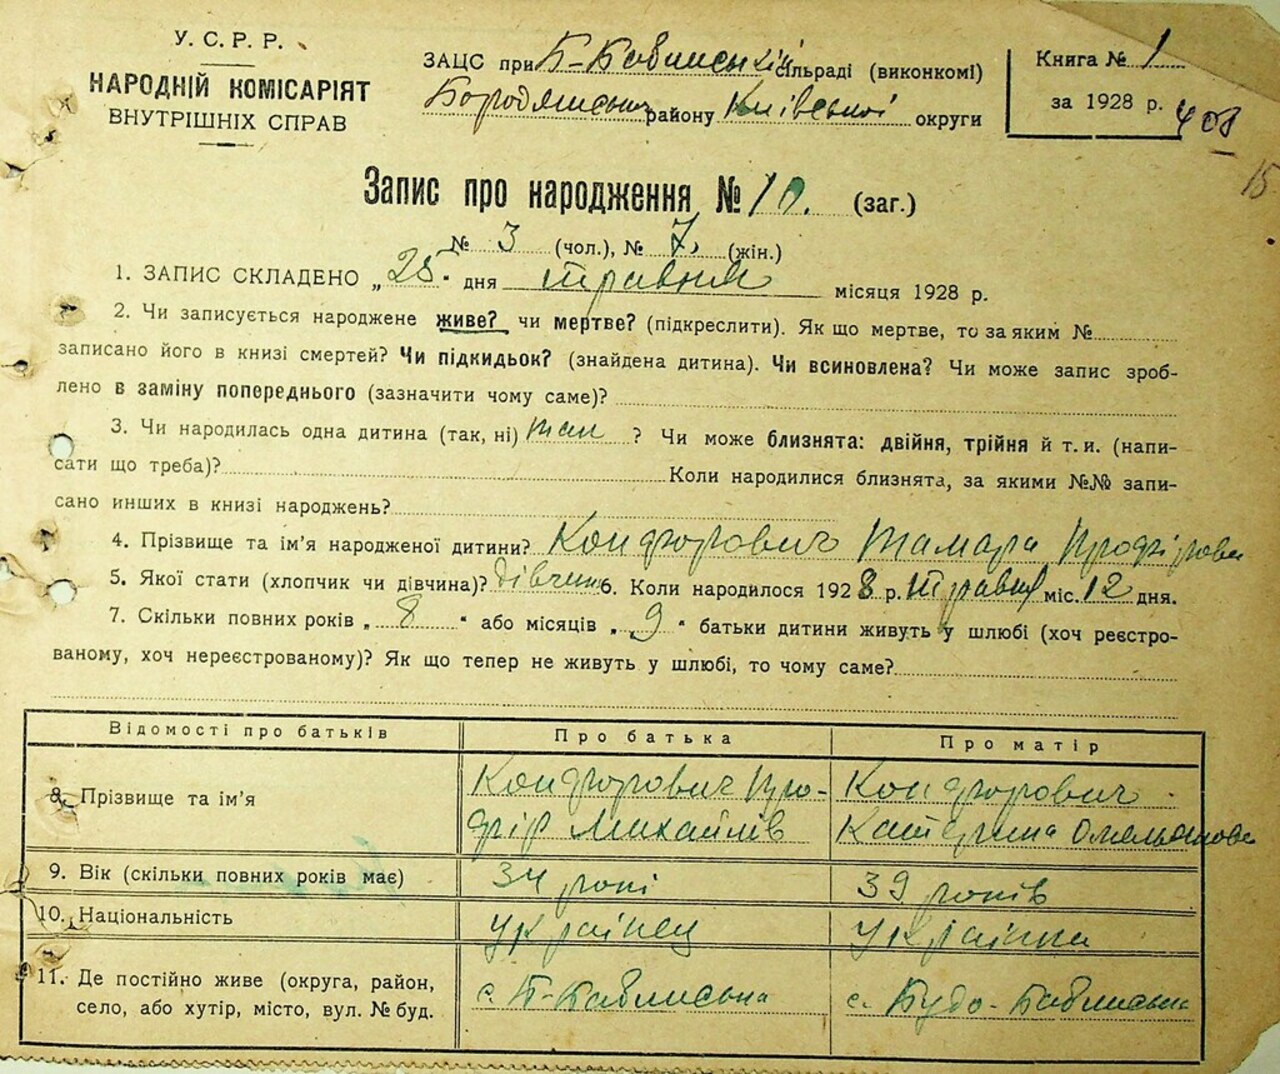 У. С. Р. Р.
НАРОДНІЙ КОМІСАРІЯТ
ВНУТРІШНІХ СПРАВ
ЗАЦС при Б-Бабинській сільраді (виконкомі)
Бородянського району Київської округи
Книга № 1
за 1928 р.
408
15
Запис про народження № 10. (заг.)
№ 3 (чол.), № 7, (жін.)
1. ЗАПИС СКЛАДЕНО „25" дня травня місяця 1928 р.
2. Чи записується народжене живе? чи мертве? (підкреслити). Як що мертве, то за яким №
записано його в книзі смертей? Чи підкидьок? (знайдена дитина). Чи всиновлена? Чи може запис зроб-
лено в заміну попереднього (зазначити чому саме)?
3. Чи народилась одна дитина (так, ні) так ? Чи може близнята: двійня, трійня й т. и. (напи-
сати що треба)? Коли народилися близнята, за якими №№ запи-
сано инших в книзі народжень?
4. Прізвище та ім'я народженої дитини? Кондрорович Тамара
5. Якої стати (хлопчик чи дівчина)? дівчина 6. Коли народилося 1928 р. травня міс. 12 дня.
7. Скільки повних років „ 8 " або місяців „ 9 " батьки дитини живуть у шлюбі (хоч реєстро-
ваному, хоч нереєстрованому)? Як що тепер не живуть у шлюбі, то чому саме?
Відомості про батьків Про батька Про матір
8. Прізвище та ім'я
Михайлів
Катерина
9. Вік (скільки повних років має) 34 рокі 39 років
10. Національність Українец Українка
11. Де постійно живе (округа, район,
село, або хутір, місто, вул. № буд.
с. Б-Бабинська с. Будо-Бабинська